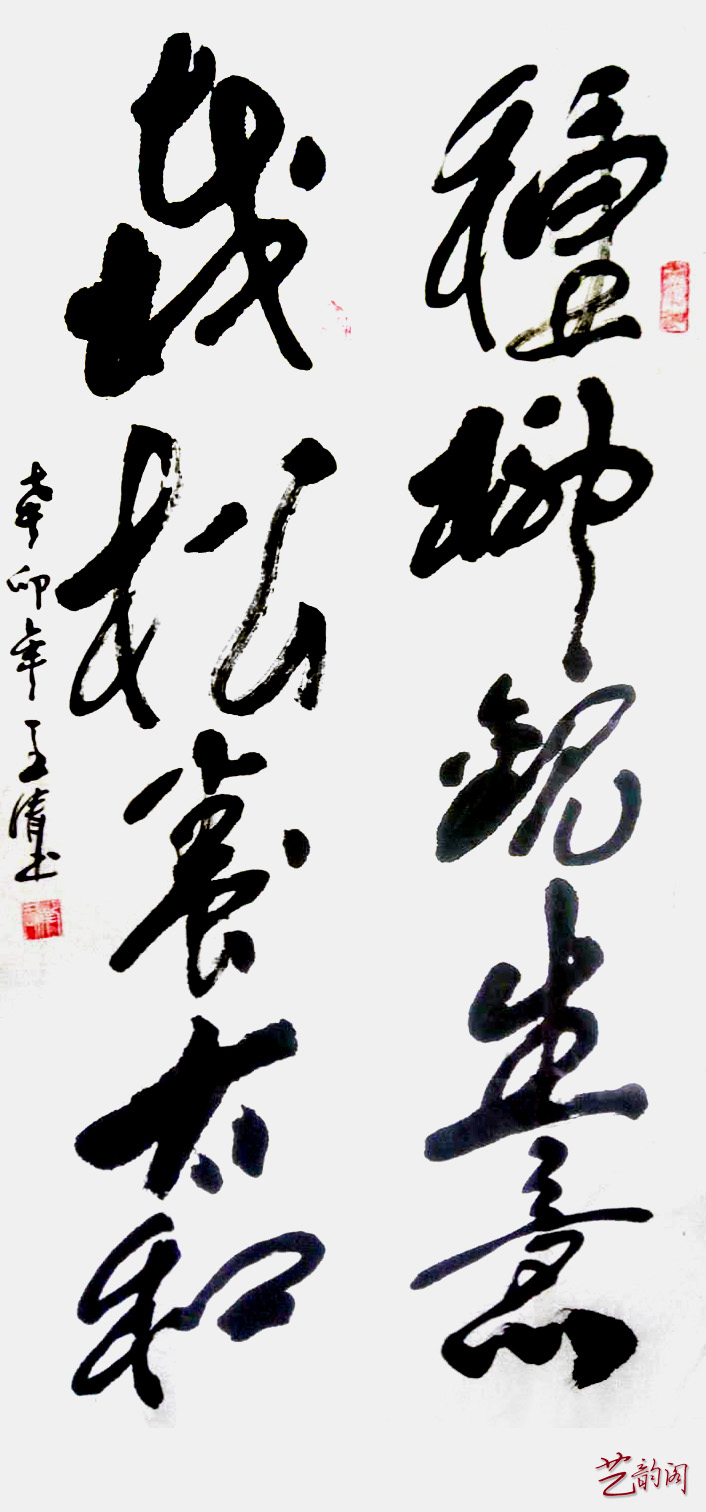 種柳觀生意
栽松養太和
辛卯年王清书
艺韵阁